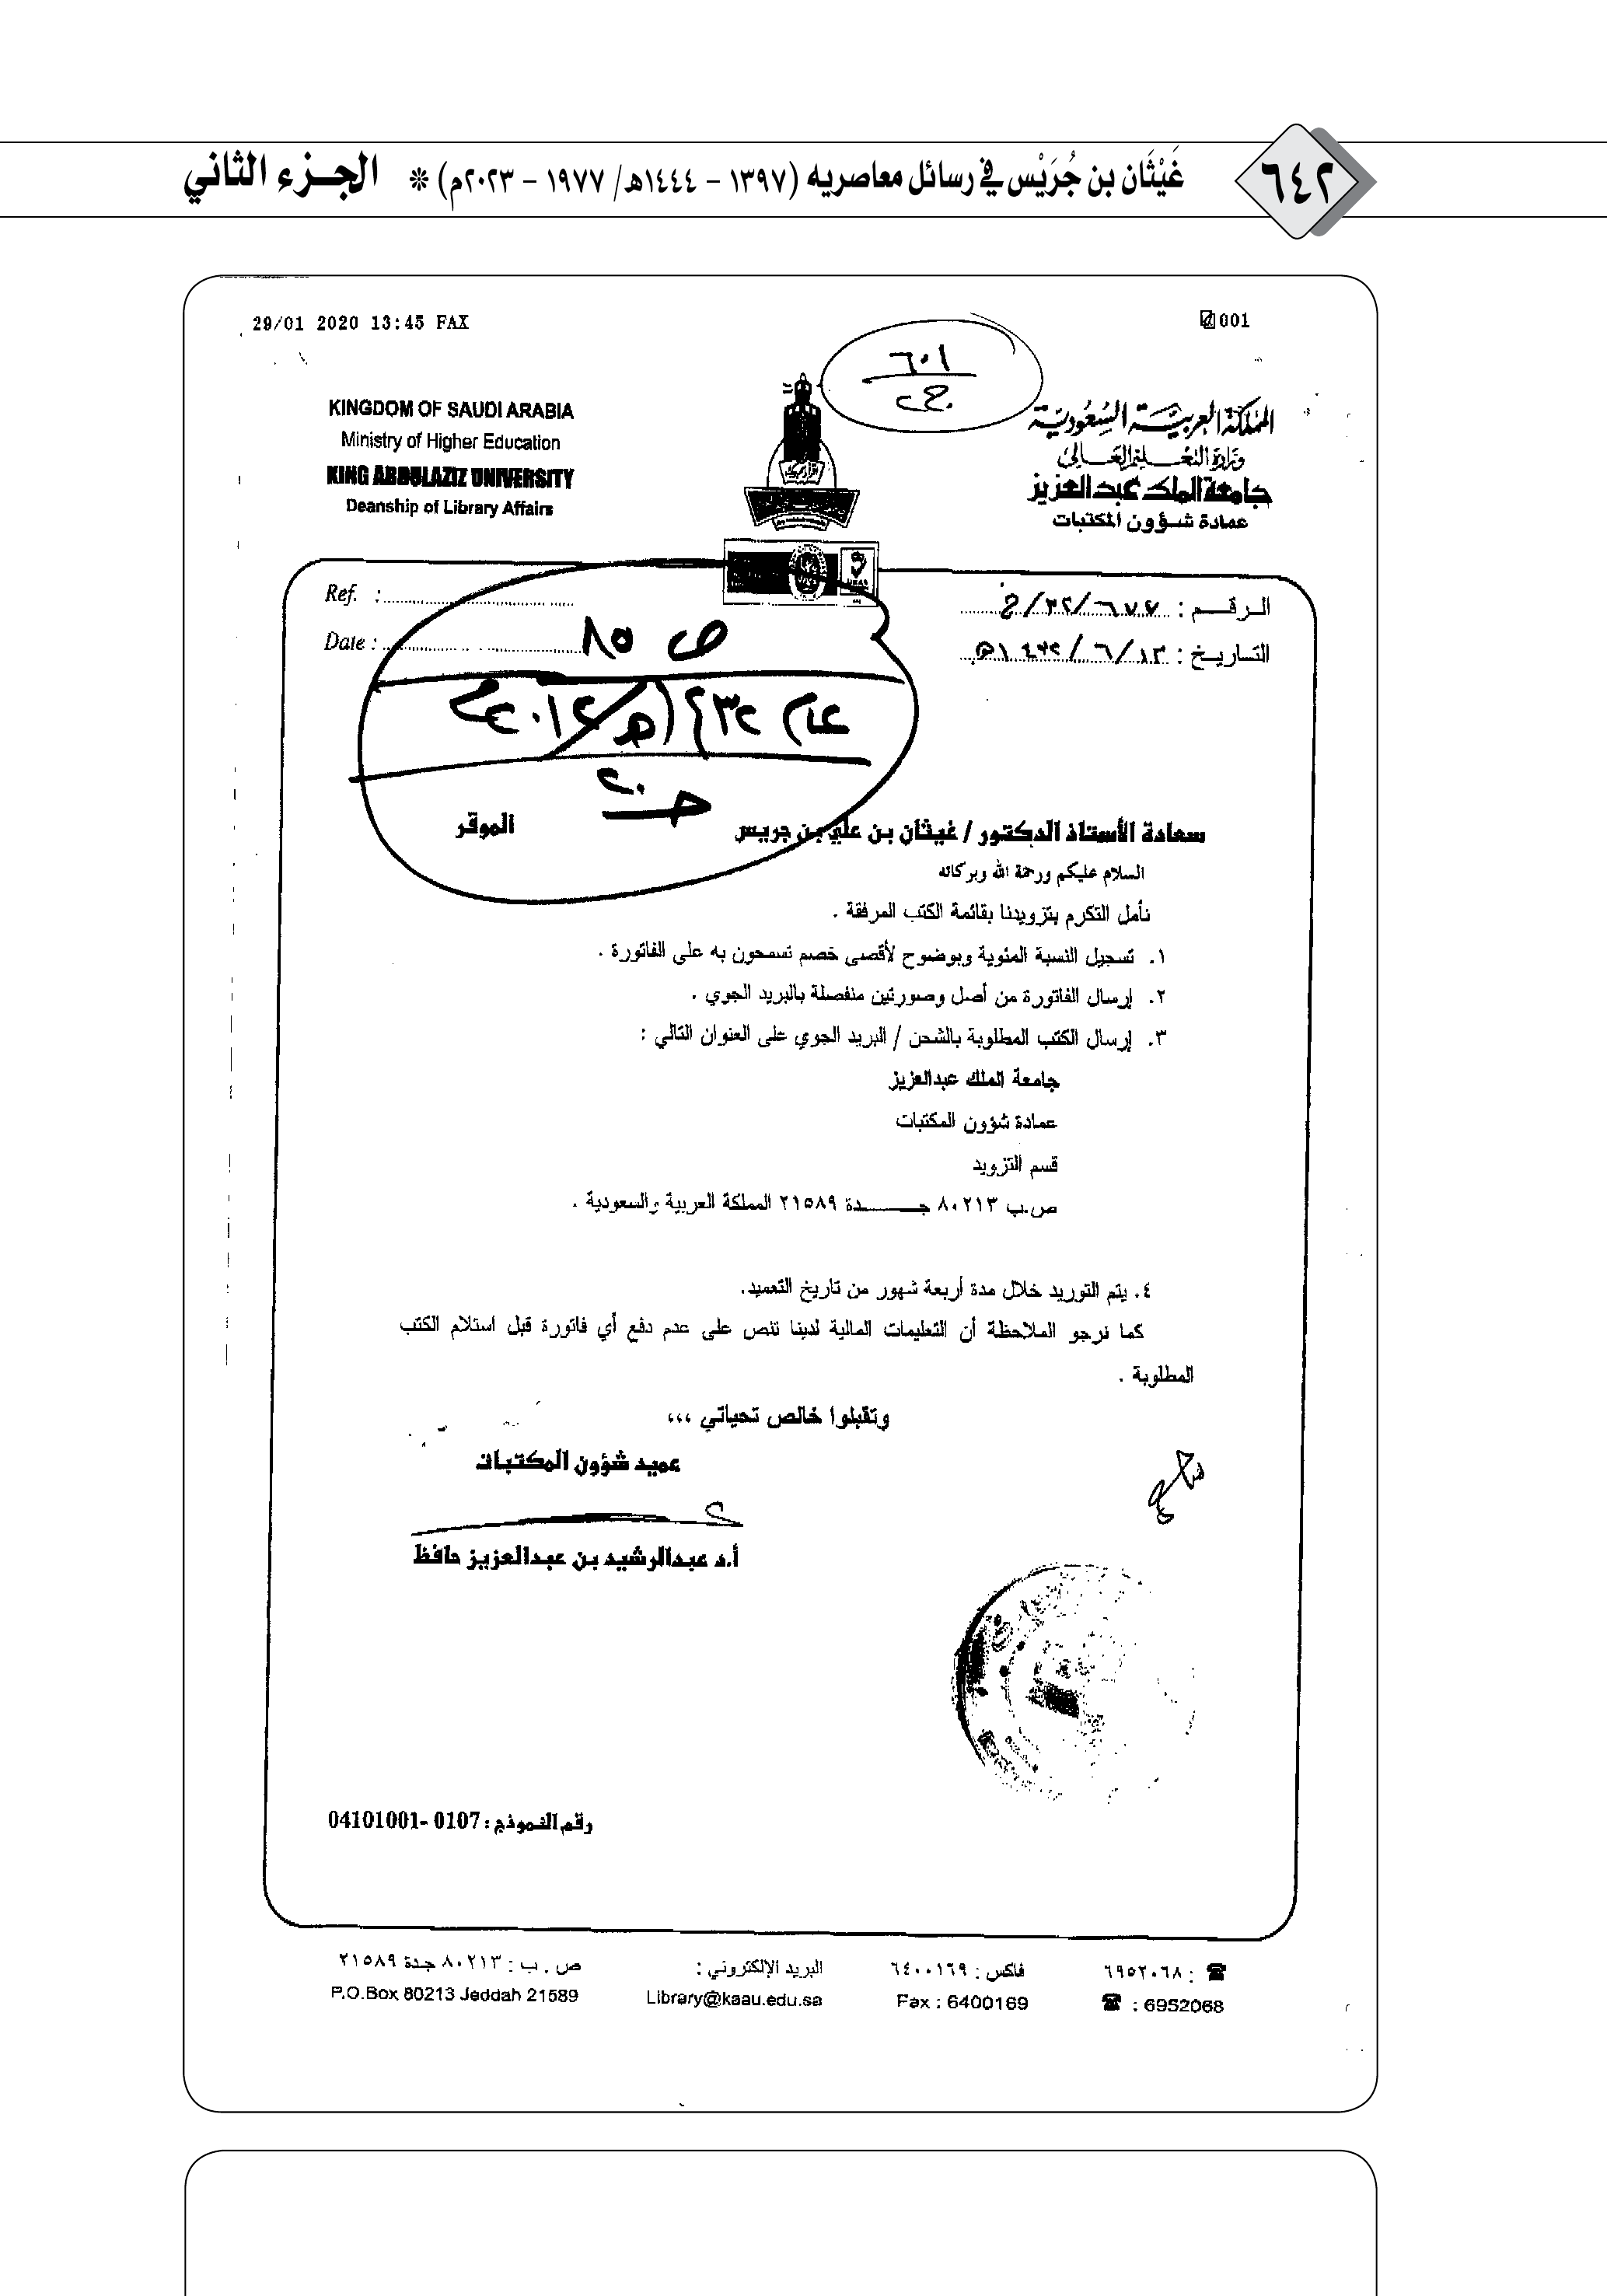 ٦٤٢
غَيْثَان بن جُرَيْس في رسائل معاصريه (١٣٩٧ - ١٤٤٤هـ/ ١٩٧٧ - ٢٠٢٣م) * الجزء الثاني
29/01 2020 13:45 FAX
001
٦٠١
KINGDOM OF SAUDI ARABIA
Ministry of Higher Education
KING ABDULAZIZ UNIVERSITY
Deanship of Library Affairs
المملكة العربية السعودية
وزارة التعليم العالي
جامعة الملك عبدالعزيز
عمادة شؤون المكتبات
Ref. :
Date :
الرقم :
التاريخ : ١٣/٦/١٤٣٢هـ
ص ٨٥
سعادة الأستاذ الدكتور / غيثان بن علي بن جريس الموقر
السلام عليكم ورحمة الله وبركاته
نأمل التكرم بتزويدنا بقائمة الكتب المرفقة .
١. تسجيل النسبة المئوية وبوضوح لأقصى خصم تسمحون به على الفاتورة .
٢. إرسال الفاتورة من أصل وصورتين منفصلة بالبريد الجوي .
٣. إرسال الكتب المطلوبة بالشحن / البريد الجوي على العنوان التالي :
جامعة الملك عبدالعزيز
عمادة شؤون المكتبات
قسم التزويد
ص.ب ٨٠٢١٣ جـــــدة ٢١٥٨٩ المملكة العربية والسعودية .
٤. يتم التوريد خلال مدة أربعة شهور من تاريخ التعميد.
كما نرجو الملاحظة أن التعليمات المالية لدينا تنص على عدم دفع أي فاتورة قبل استلام الكتب
المطلوبة .
وتقبلوا خالص تحياتي ،،،
عميد شؤون المكتبات
أ.د عبدالرشيد بن عبدالعزيز حافظ
رقم النموذج : 0107 -04101001
☎ : ٦٩٥٢٠٦٨ فاكس : ٦٤٠٠١٦٩ البريد الإلكتروني : ص . ب : ٨٠٢١٣ جدة ٢١٥٨٩
☎ : 6952068 Fax : 6400169 Library@kaau.edu.sa P.O.Box 80213 Jeddah 21589